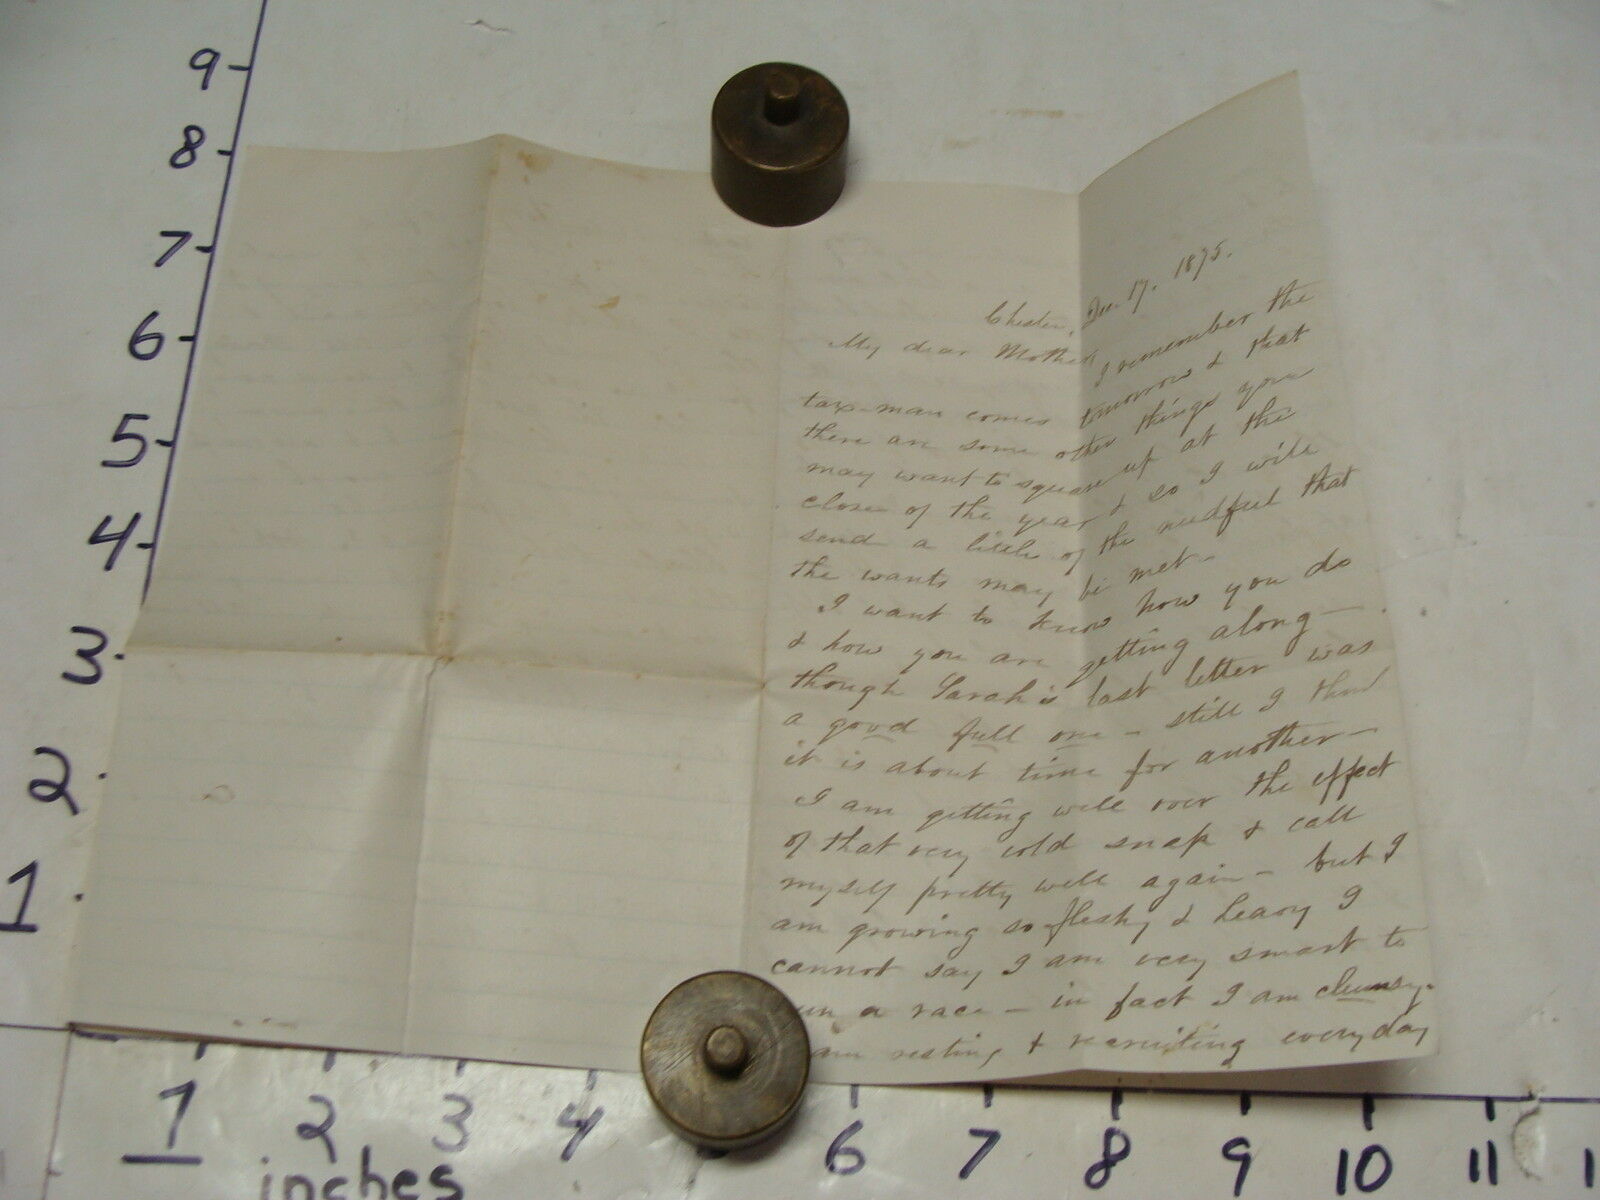 9
8
7
6
5
4
3
2
1
Chester, Dec. 17. 1875.
My dear Mother
I remember the
tax-man comes tomorrow & that
there are some other things you
may want to square up at the
close of the year & so I will
send a little of the needful that
the wants may be met -
I want to know how you do
& how you are getting along -
though Sarah's last letter was
a good full one - still I think
it is about time for another -
I am getting well over the effect
of that very cold snap & call
myself pretty well again - but I
am growing so fleshy & heavy I
cannot say I am very smart to
run a race - in fact I am clumsy.
am resting & recruiting every day
1 2 3 4 6 7 8 9 10 11 1
inches